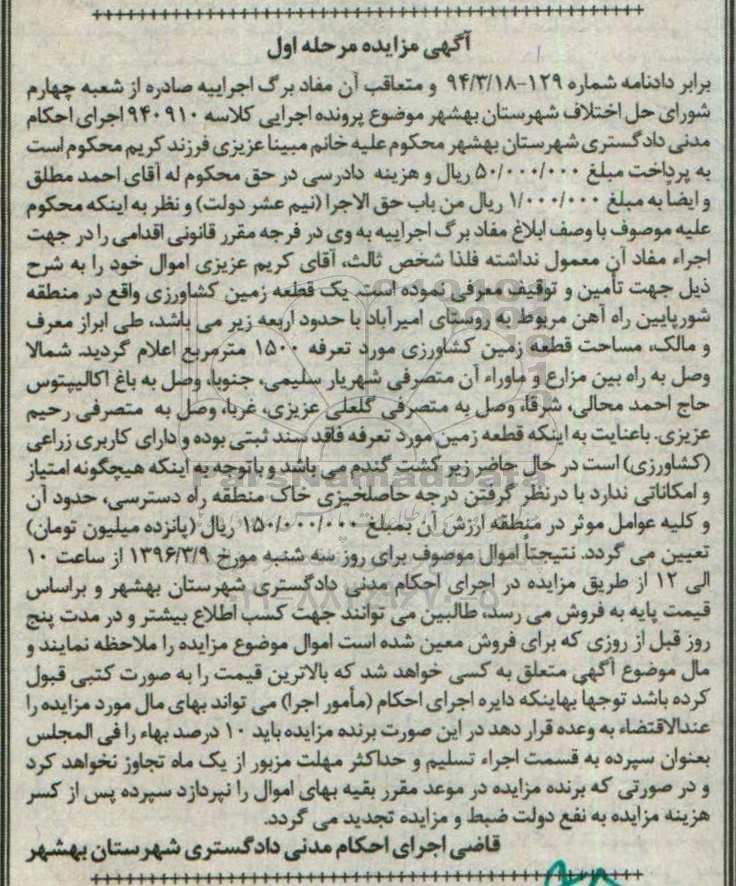 آگهی مزایده مرحله اول
برابر دادنامه شماره ۱۲۹-۹۴/۳/۱۸ و متعاقب آن مفاد برگ اجراییه صادره از شعبه چهارم
شورای حل اختلاف شهرستان بهشهر موضوع پرونده اجرایی کلاسه ۹۴۰۹۱۰ اجرای احکام
مدنی دادگستری شهرستان بهشهر محکوم علیه خانم مبینا عزیزی فرزند کریم محکوم است
به پرداخت مبلغ ۵۰/۰۰۰/۰۰۰ ریال و هزینه دادرسی در حق محکوم له آقای احمد مطلق
و ایضاً به مبلغ ۱/۰۰۰/۰۰۰ ریال من باب حق الاجرا (نیم عشر دولت) و نظر به اینکه محکوم
علیه موصوف با وصف ابلاغ مفاد برگ اجراییه به وی در فرجه مقرر قانونی اقدامی را در جهت
اجراء مفاد آن معمول نداشته فلذا شخص ثالث، آقای کریم عزیزی اموال خود را به شرح
ذیل جهت تأمین و توقیف معرفی نموده است. یک قطعه زمین کشاورزی واقع در منطقه
شورپایین راه آهن مربوط به روستای امیرآباد با حدود اربعه زیر می باشد، طی ابراز معرف
و مالک، مساحت قطعه زمین کشاورزی مورد تعرفه ۱۵۰۰ مترمربع اعلام گردید. شمالا
وصل به راه بین مزارع و ماوراء آن متصرفی شهریار سلیمی، جنوبا، وصل به باغ اکالیپتوس
حاج احمد محالی، شرقا، وصل به متصرفی گلعلی عزیزی، غربا، وصل به متصرفی رحیم
عزیزی. باعنایت به اینکه قطعه زمین مورد تعرفه فاقد سند ثبتی بوده و دارای کاربری زراعی
(کشاورزی) است در حال حاضر زیر کشت گندم می باشد و باتوجه به اینکه هیچگونه امتیاز
و امکاناتی ندارد با درنظر گرفتن درجه حاصلخیزی خاک منطقه راه دسترسی، حدود آن
و کلیه عوامل موثر در منطقه ارزش آن بمبلغ ۱۵۰/۰۰۰/۰۰۰ ریال (پانزده میلیون تومان)
تعیین می گردد. نتیجتاً اموال موصوف برای روز سه شنبه مورخ ۱۳۹۶/۳/۹ از ساعت ۱۰
الی ۱۲ از طریق مزایده در اجرای احکام مدنی دادگستری شهرستان بهشهر و براساس
قیمت پایه به فروش می رسد، طالبین می توانند جهت کسب اطلاع بیشتر و در مدت پنج
روز قبل از روزی که برای فروش معین شده است اموال موضوع مزایده را ملاحظه نمایند و
مال موضوع آگهی متعلق به کسی خواهد شد که بالاترین قیمت را به صورت کتبی قبول
کرده باشد توجها بهاینکه دایره اجرای احکام (مأمور اجرا) می تواند بهای مال مورد مزایده را
عندالاقتضاء به وعده قرار دهد در این صورت برنده مزایده باید ۱۰ درصد بهاء را فی المجلس
بعنوان سپرده به قسمت اجراء تسلیم و حداکثر مهلت مزبور از یک ماه تجاوز نخواهد کرد
و در صورتی که برنده مزایده در موعد مقرر بقیه بهای اموال را نپردازد سپرده پس از کسر
هزینه مزایده به نفع دولت ضبط و مزایده تجدید می گردد.
قاضی اجرای احکام مدنی دادگستری شهرستان بهشهر
ParsNamadData